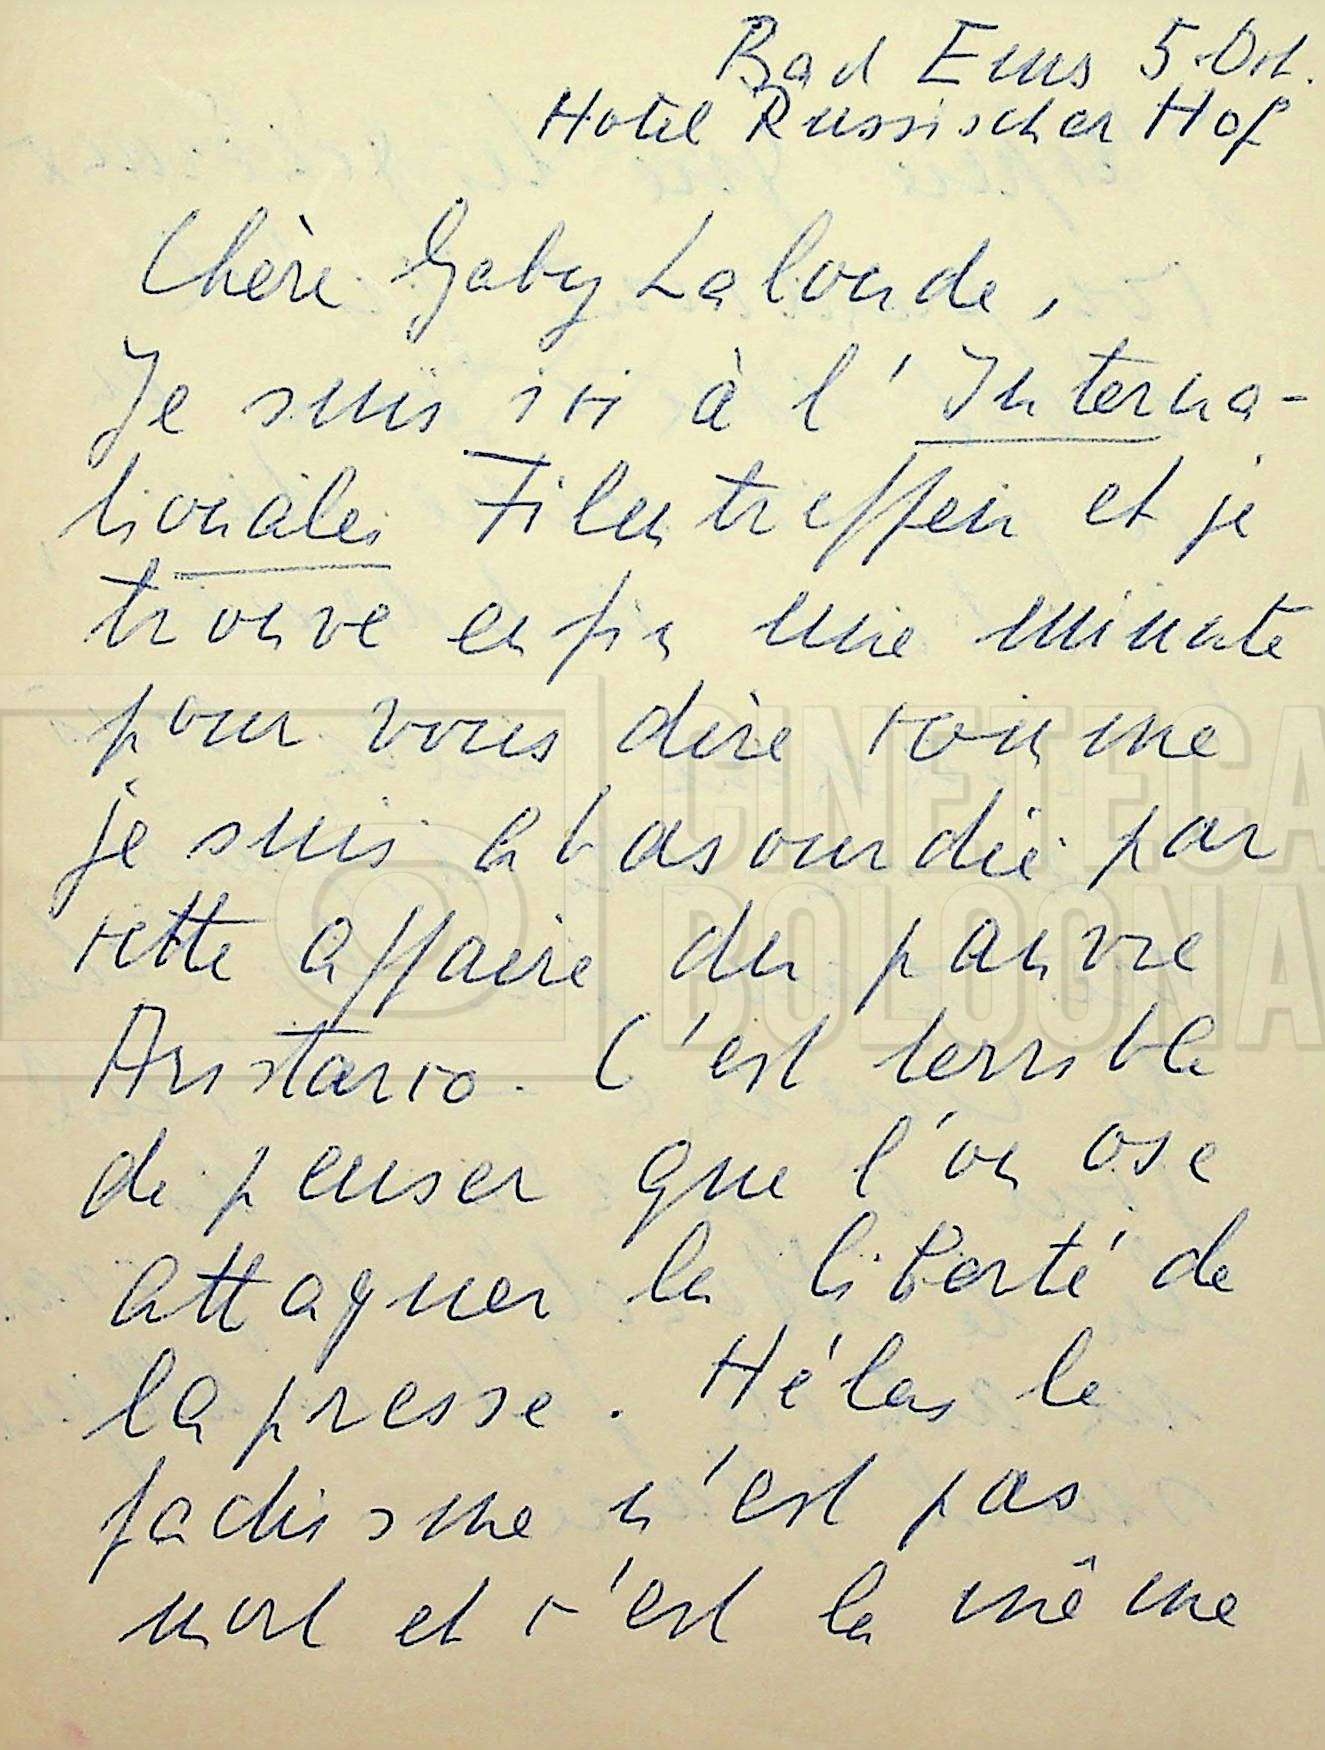 Bad Ems 5. Okt.
Hotel Russischer Hof
Chère Gaby Lalonde,
Je suis ici à l'Interna-
tionales Filmtreffen et je
trouve enfin une minute
pour vous dire comme
je suis abasourdie par
cette affaire du pauvre
Aristarco. C'est terrible
de penser que l'on ose
attaquer la liberté de
la presse. Hélas le
fachisme n'est pas
mort et c'est la même
CINETECA
BOLOGNA